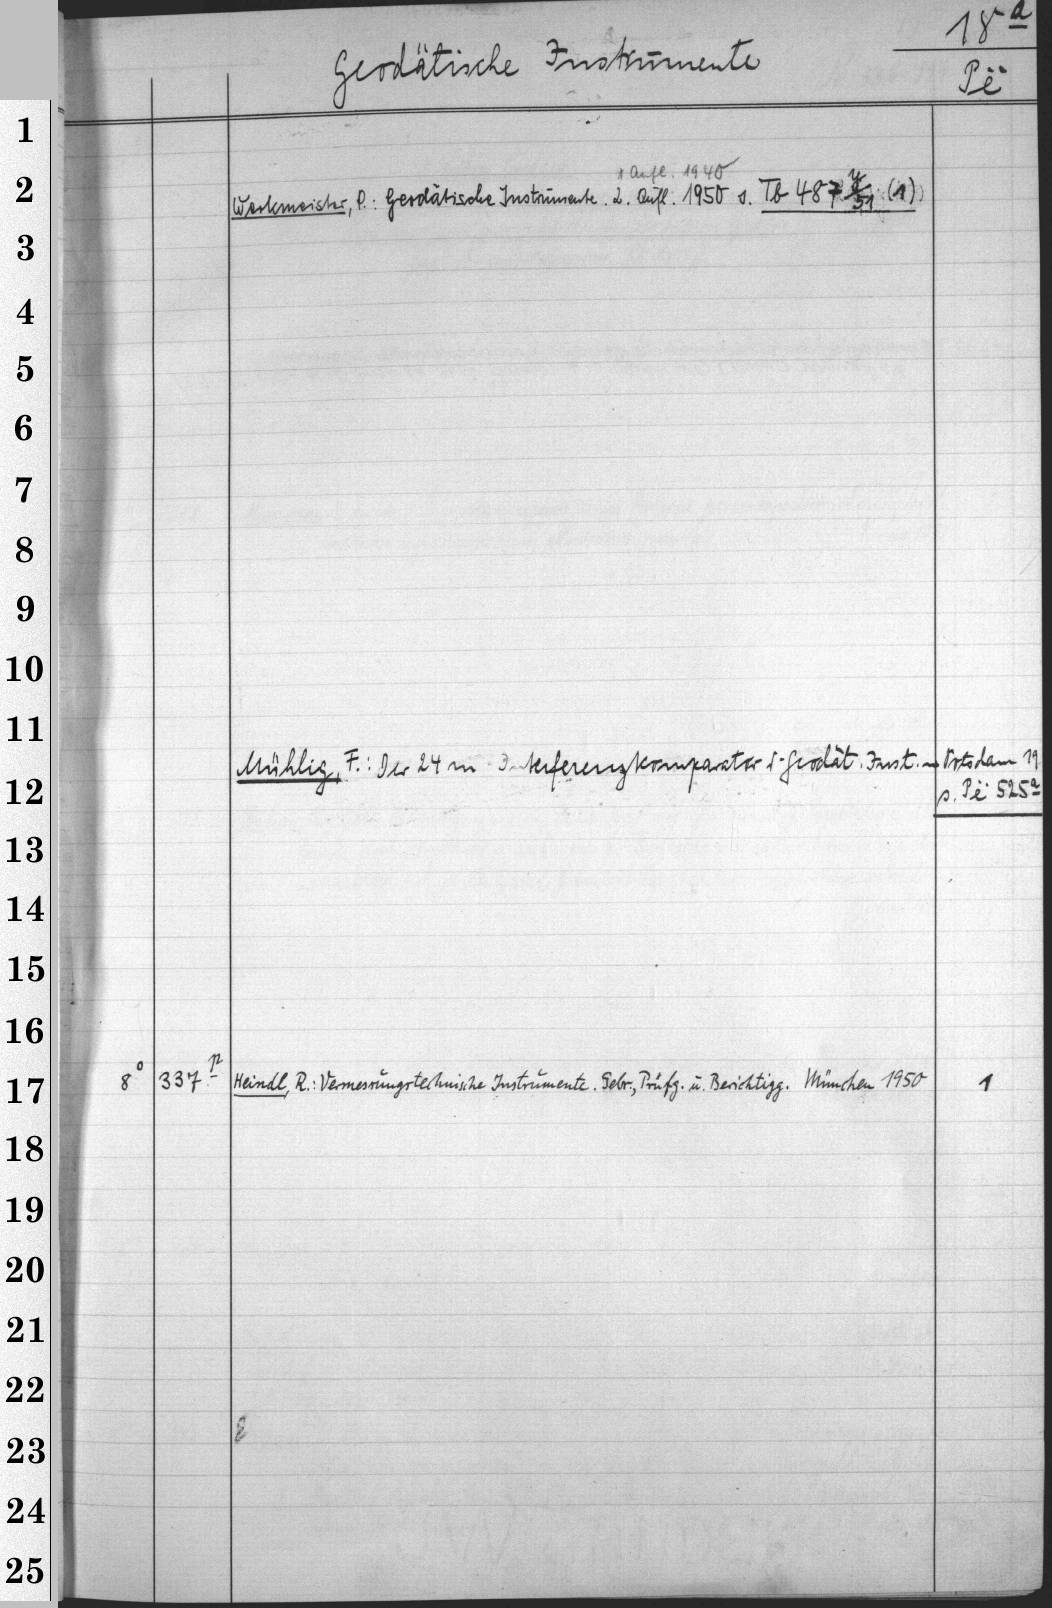 18 a
Geodätische Instrumente
Pë
1
1 Aufl. 1940
2
Werkmeister, P.: Geodätische Instrumente. 2. Aufl. 1950 s. Tb 487 (1)
3
4
5
6
7
8
9
10
11
Mühlig, F.: Der 24 m Interferenzkomparator d. Geodät. Inst. in Potsdam 19
12
s. Pë 525a
13
14
15
16
17
8° 337 p Heindl, R.: Vermessungstechnische Instrumente. Gebr., Prüfg. u. Berichtigg. München 1950 1
18
19
20
21
22
23
24
25